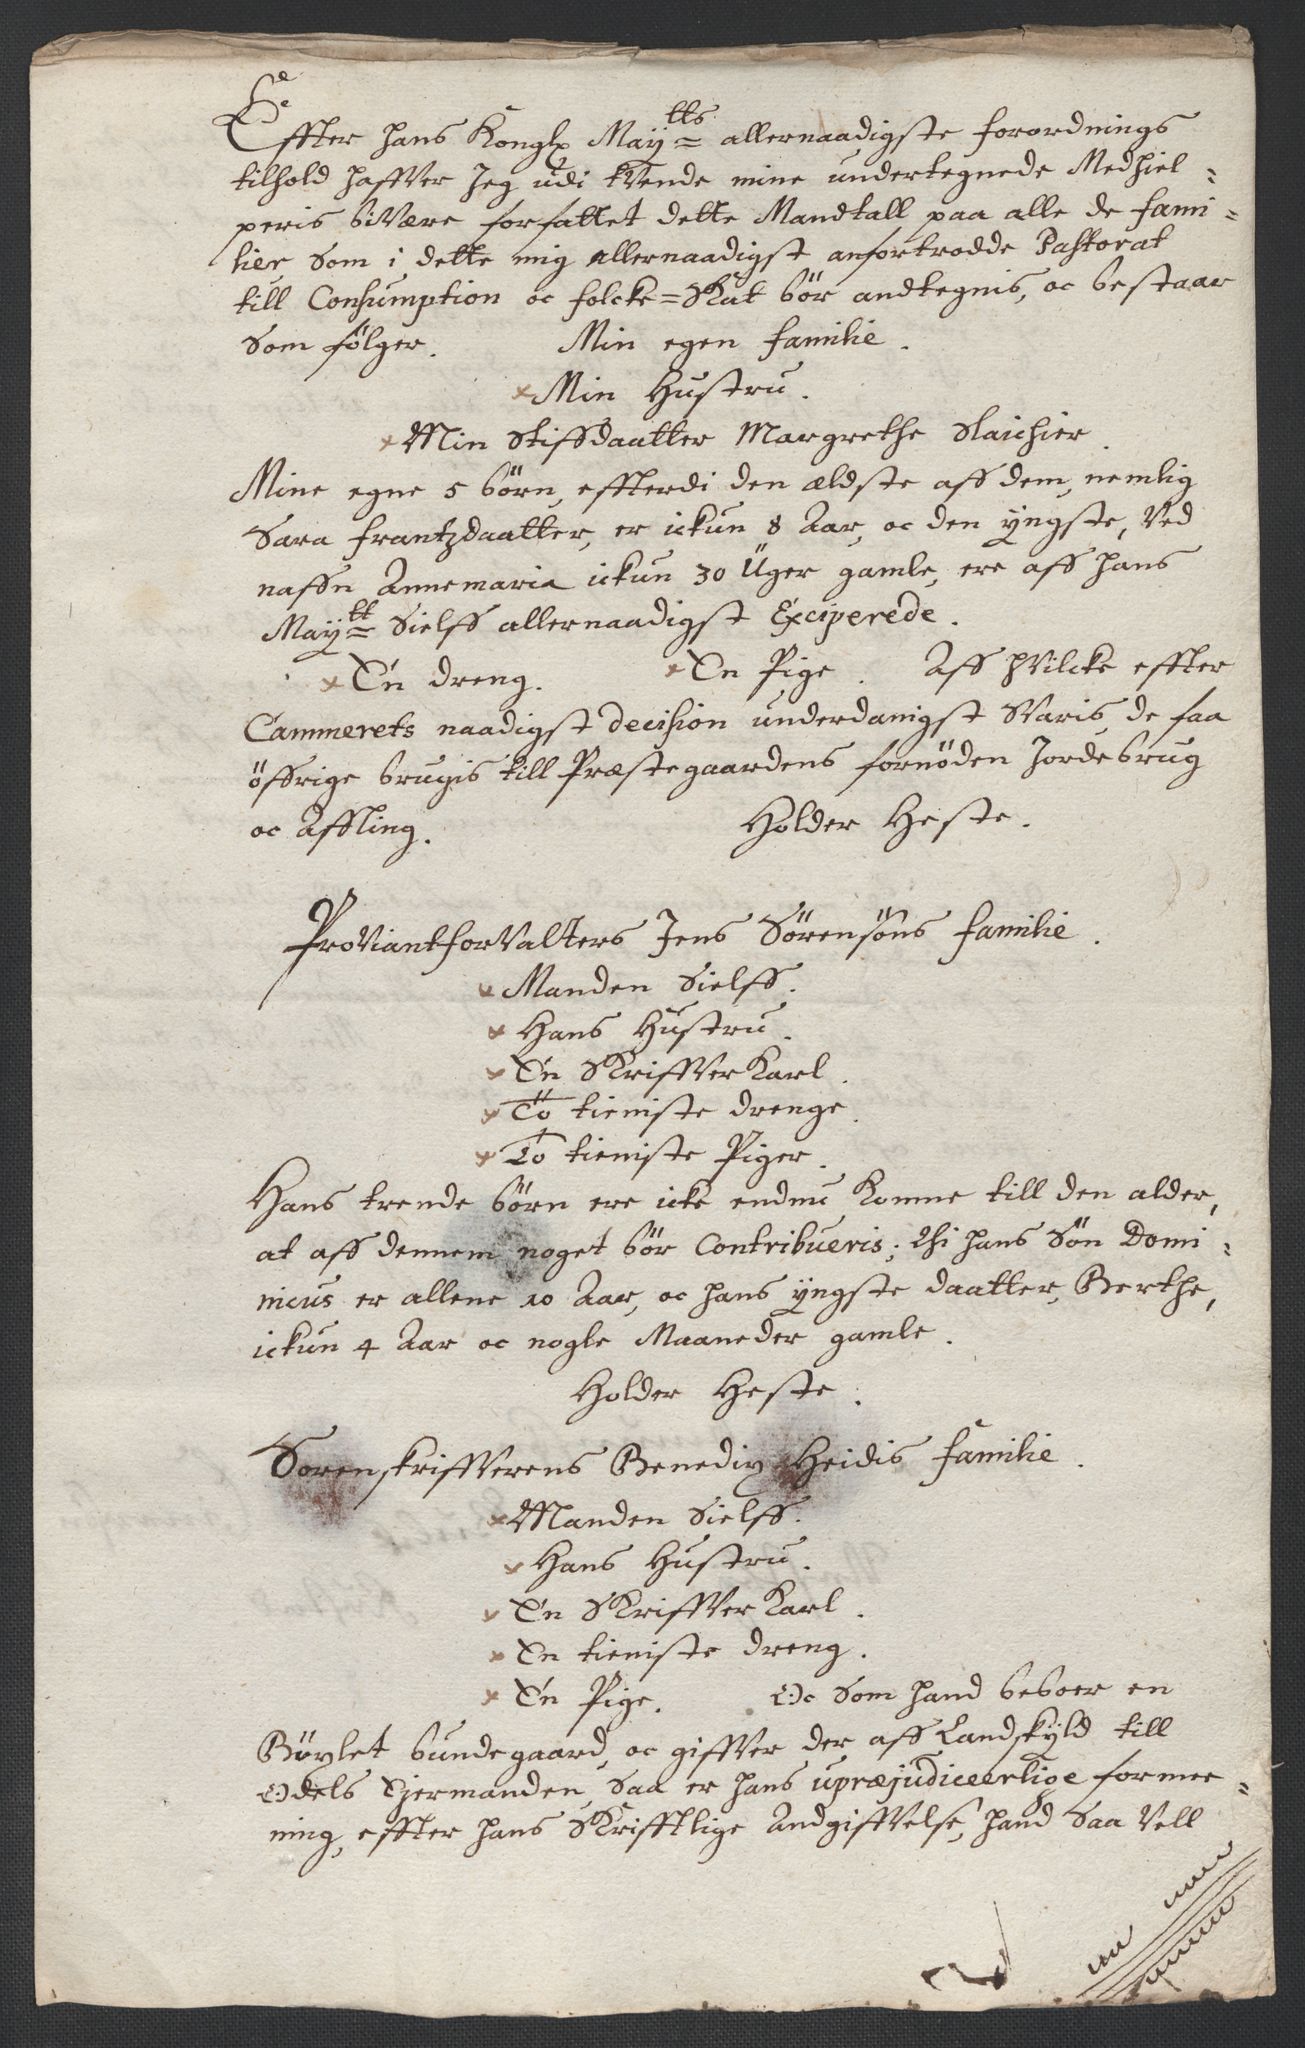 Effter hans Konglx Maytts allernaadigste forordnings
tilhold haffver Jeg udi tvende mine undertegnede Medhiel=
peris bivære forfattet dette Mandtall paa alle de fami=
lier som i dette mig allernaadigst anfortrodde Pastorat
till Consumption oc folcke=Skat bør andtegnis, oc bestaar
som følger. Min egen familie.
Min Hustru.
Min Stiffdaatter Margrethe Slaichier.
Mine egne 5 børn, effterdi den ældste aff dem, nemlig
Sara Frantzdaatter, er ickun 8 Aar, oc den yngste, ved
naffn Annemaria ickun 30 Uger gamle, ere aff hans
Maytt Sielff allernaadigst Exciperede.
En dreng. En Pige. Aff hvilcke effter
Cammerets naadigst decision underdanigst svaris, de faa
öffrige brugis till Præstegaardens fornøden Jordebrug
oc Affling. Holder Heste.
Proviantforvalters Jens Sörensöns familie.
Manden Sielff.
Hans Hustru.
En Skriffver Karl.
To tieniste drenge.
To tieniste Piger.
Hans trende börn ere icke endnu komne till den alder,
at aff dennem noget bör Contribueris; thi hans Sön Domi=
nicus er allene 10 Aar, oc hans yngste daatter, Berthe,
ickun 4 Aar oc nogle Maaneder gamle.
Holder Heste.
Sorenskriffverens Benedix Heidis familie.
Manden Sielff.
Hans Hustru.
En Skriffver Karl.
En tieniste dreng.
En Pige. Oc som hand beboer en
Böxlet bundegaard, oc giffver der aff Landskyld till
Odels Ejermanden, saa er hans upræjudiceerlige formee=
ning, effter hans Skrifftlige Andgiffvelse, hand saa vell